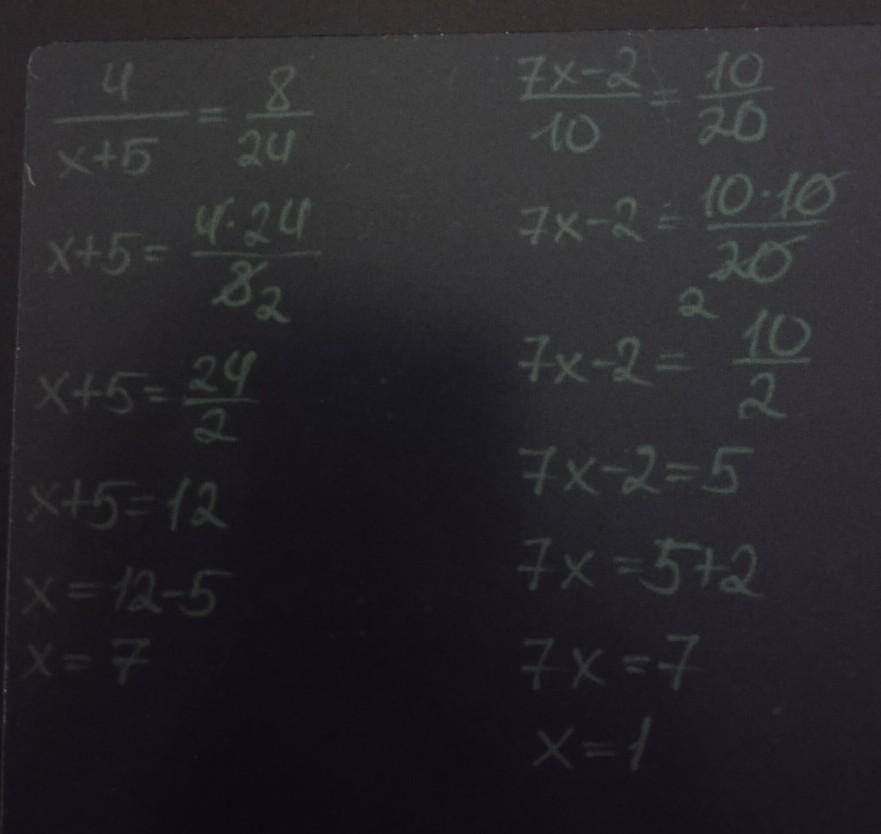 4/(x+5) = 8/24
x+5 = (4·24)/8 2
x+5 = 24/2
x+5=12
x=12-5
x=7
(7x-2)/10 = 10/20
7x-2 = (10·10)/20 2
7x-2 = 10/2
7x-2=5
7x=5+2
7x=7
x=1